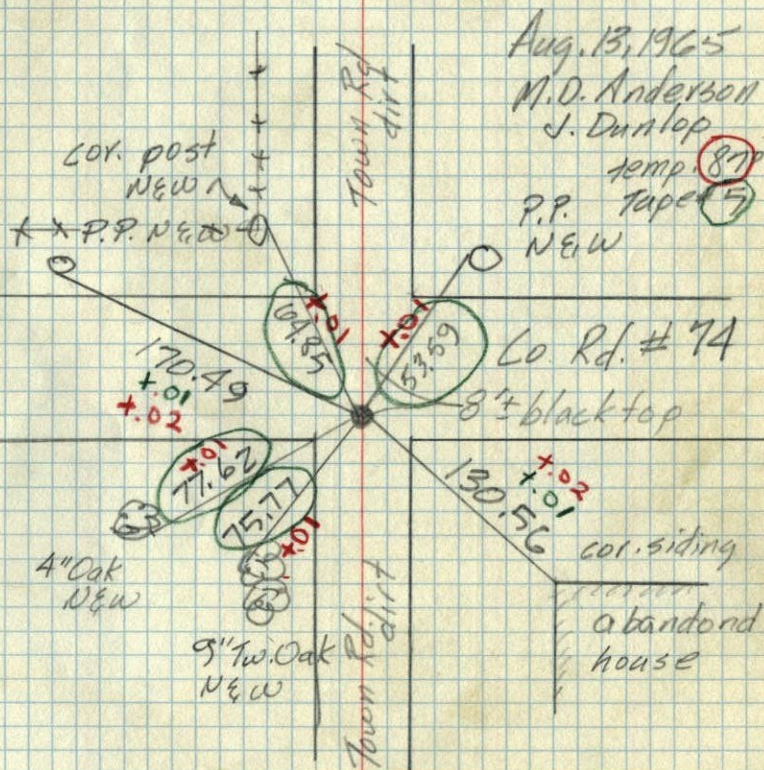 Aug. 13, 1965
M.D. Anderson
J. Dunlop
temp. 87°
Tape # 5
Town Rd
dirt
cor. post
N&W
P.P. N&W
P.P.
N&W
+.01
64.85
+.01
53.59
Co. Rd. # 74
8"± blacktop
170.49
+.01
+.02
+.01
77.62
75.77
+.01
+.02
+.01
130.56
4" Oak
N&W
9" Tw. Oak
N&W
cor. siding
abandond
house
Town Rd.
dirt